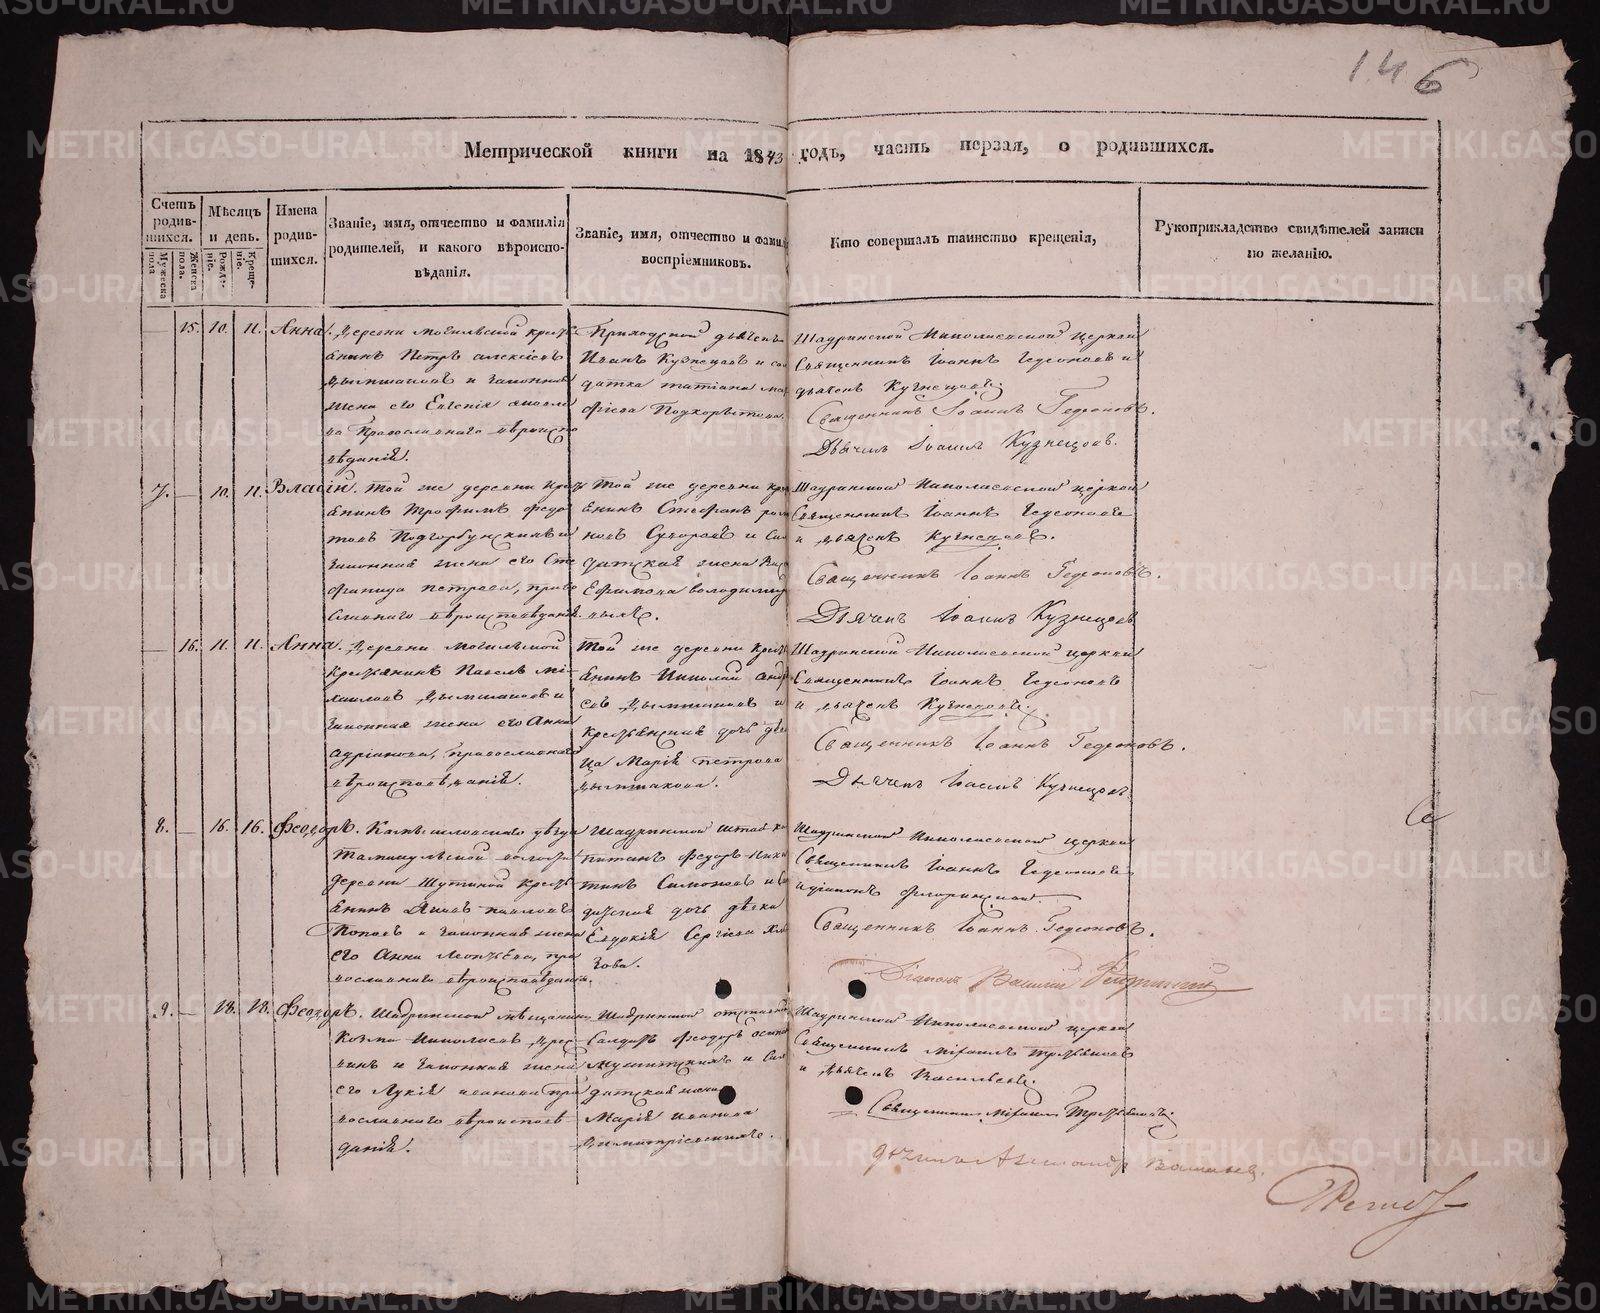 146
Метрической книги на 1843 годъ, часть первая, о родившихся.
Счетъ родившихся.
Мужеска пола
Женска пола.
Мѣсяцъ и день.
Рожденіе.
Крещеніе.
Имена родившихся.
Званіе, имя, отчество и фамилія
родителей, и какого вѣроиспо-
вѣданія.
Званіе, имя, отчество и фамилі
воспріемниковъ.
Кто совершалъ таинство крещенія,
Рукоприкладство свидѣтелей записи
по желанію.
15. 10. 11. Анна.
Деревни Могильской кресть
янинъ Петръ Алексіевъ
и законная
жена его Евгенія
православнаго вѣроиспо
вѣданія.
Приходской дьячекъ
Иванъ Кузнецовъ и сол
датка Татіана
Подкорытова.
Шадринской Николаевской церкви
Священникъ Іоаннъ Гедеоновъ и
дьячекъ Кузнецовъ.
Священникъ Іоаннъ Гедеоновъ.
Дьячекъ Іоаннъ Кузнецовъ.
7. 10. 11. Власій.
Той же деревни крест
янинъ Трофимъ Федо
товъ Подгорбунскихъ и
законная жена его Сте
фанида Петрова, право
славнаго вѣроисповѣданія.
Той же деревни кре
янинъ Стефанъ
новъ Суворовъ и сол
датская жена
Ефимова
Шадринской Николаевской церкви
Священникъ Іоаннъ Гедеоновъ
и дьячекъ Кузнецовъ.
Священникъ Іоаннъ Гедеоновъ.
Дьячекъ Іоаннъ Кузнецовъ
16. 11. 11. Анна.
Деревни Могильской
крестьянинъ Павелъ Ми-
хаиловъ и
законная жена его Анна
Адріанова, православнаго
вѣроисповѣданія.
Той же деревни кресть
янинъ Николай
и
крестьянская дочь дѣви
ца Марія Петрова
Шадринской Николаевской церкви
Священникъ Іоаннъ Гедеоновъ
и дьячекъ Кузнецовъ.
Священникъ Іоаннъ Гедеоновъ.
Дьячекъ Іоаннъ Кузнецовъ.
8. 16. 16. Феодоръ.
Камышловскаго уѣзда
Тамакульской волости
деревни Шутиной кресть
янинъ Яковъ Павловъ
Поповъ и законная жена
его Анна Леонтьева, пра
вославнаго вѣроисповѣданія.
Шадринской штабъ-ка
питанъ Федоръ Ники
тинъ Симоновъ и сол
датская дочь дѣвка
Евдокія Сергіева
Шадринской Николаевской церкви
Священникъ Іоаннъ Гедеоновъ
и діаконъ
Священникъ Іоаннъ Гедеоновъ.
Діаконъ Василій
9. 18. 18. Феодоръ.
Шадринской мѣщанинъ
Козма Николаевъ
и законная жена
его Лукія Иванова пра
вославнаго вѣроисповѣ
данія.
Шадринской отставной
солдатъ Феодоръ Осипо
и сол
датская жена
Марія Иванова
Шадринской Николаевской церкви
Священникъ Михаилъ Третьяковъ
и дьячекъ Васильевъ.
Священникъ Михаилъ Третьяковъ.
дьячекъ Александръ Васильевъ.
METRIKI.GASO-URAL.RU